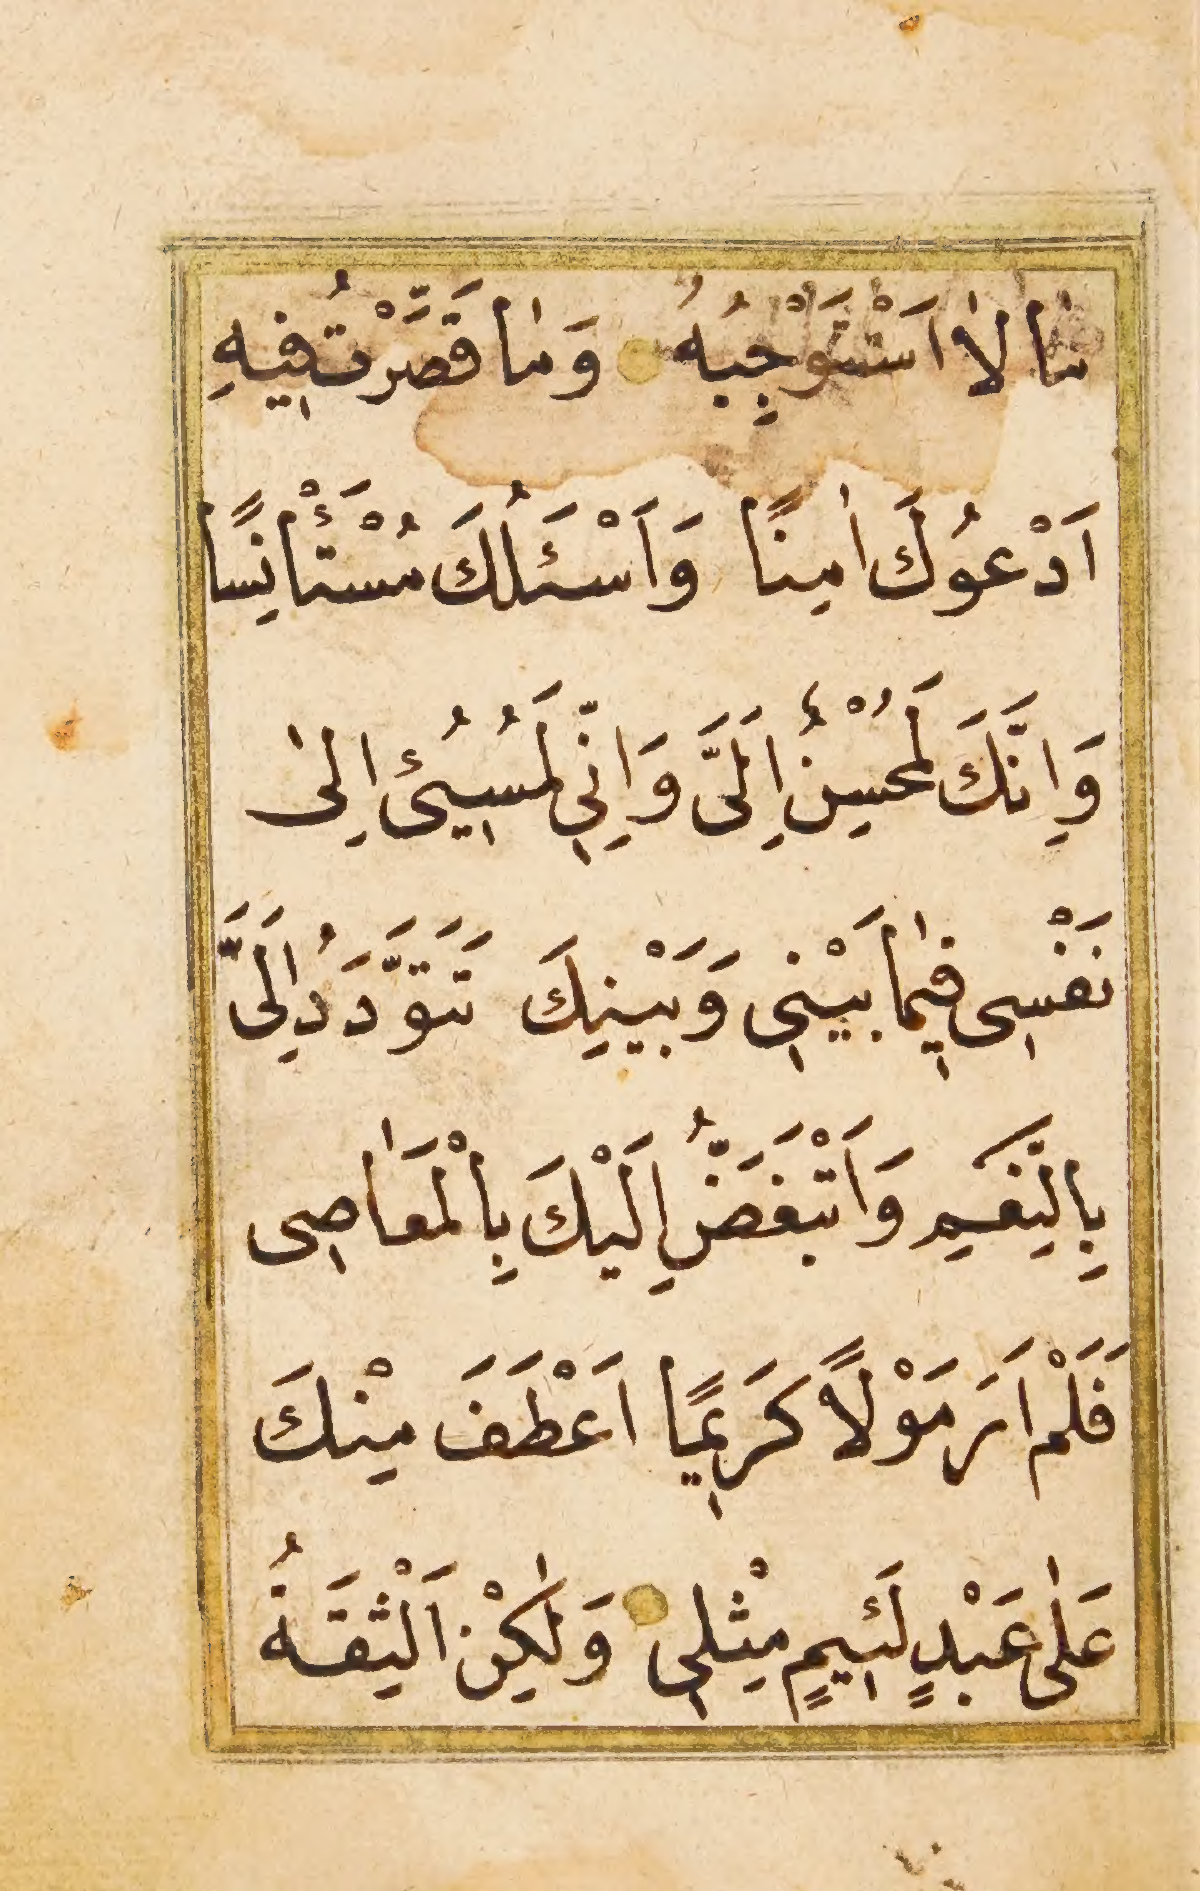 مٰا لاٰ اَسْتَوْجِبُهُ وَمٰا قَصَّرْتُ فٖيهِ
اَدْعُوكَ اٰمِنًا وَاَسْئَلُكَ مُسْتَأْنِسًا
وَاِنَّكَ لَمُحْسِنُ اِلَىَّ وَاِنّٖى لَمُسٖيُئُ اِلىٰ
نَفْسٖى فٖيمٰا بَيْنٖى وَبَيْنِكَ تَتَوَدَّدُ اِلَىَّ
بِالنِّعَمِ وَاَتْبَغَضُّ اِلَيْكَ بِالْمَعٰاصٖى
فَلَمْ اَرَ مَوْلاً كَرٖيمًا اَعْطَفَ مِنْكَ
عَلٰى عَبْدٍ لَئٖيمٍ مِثْلٖى وَلٰكِنْ اَلْثِقَةُ